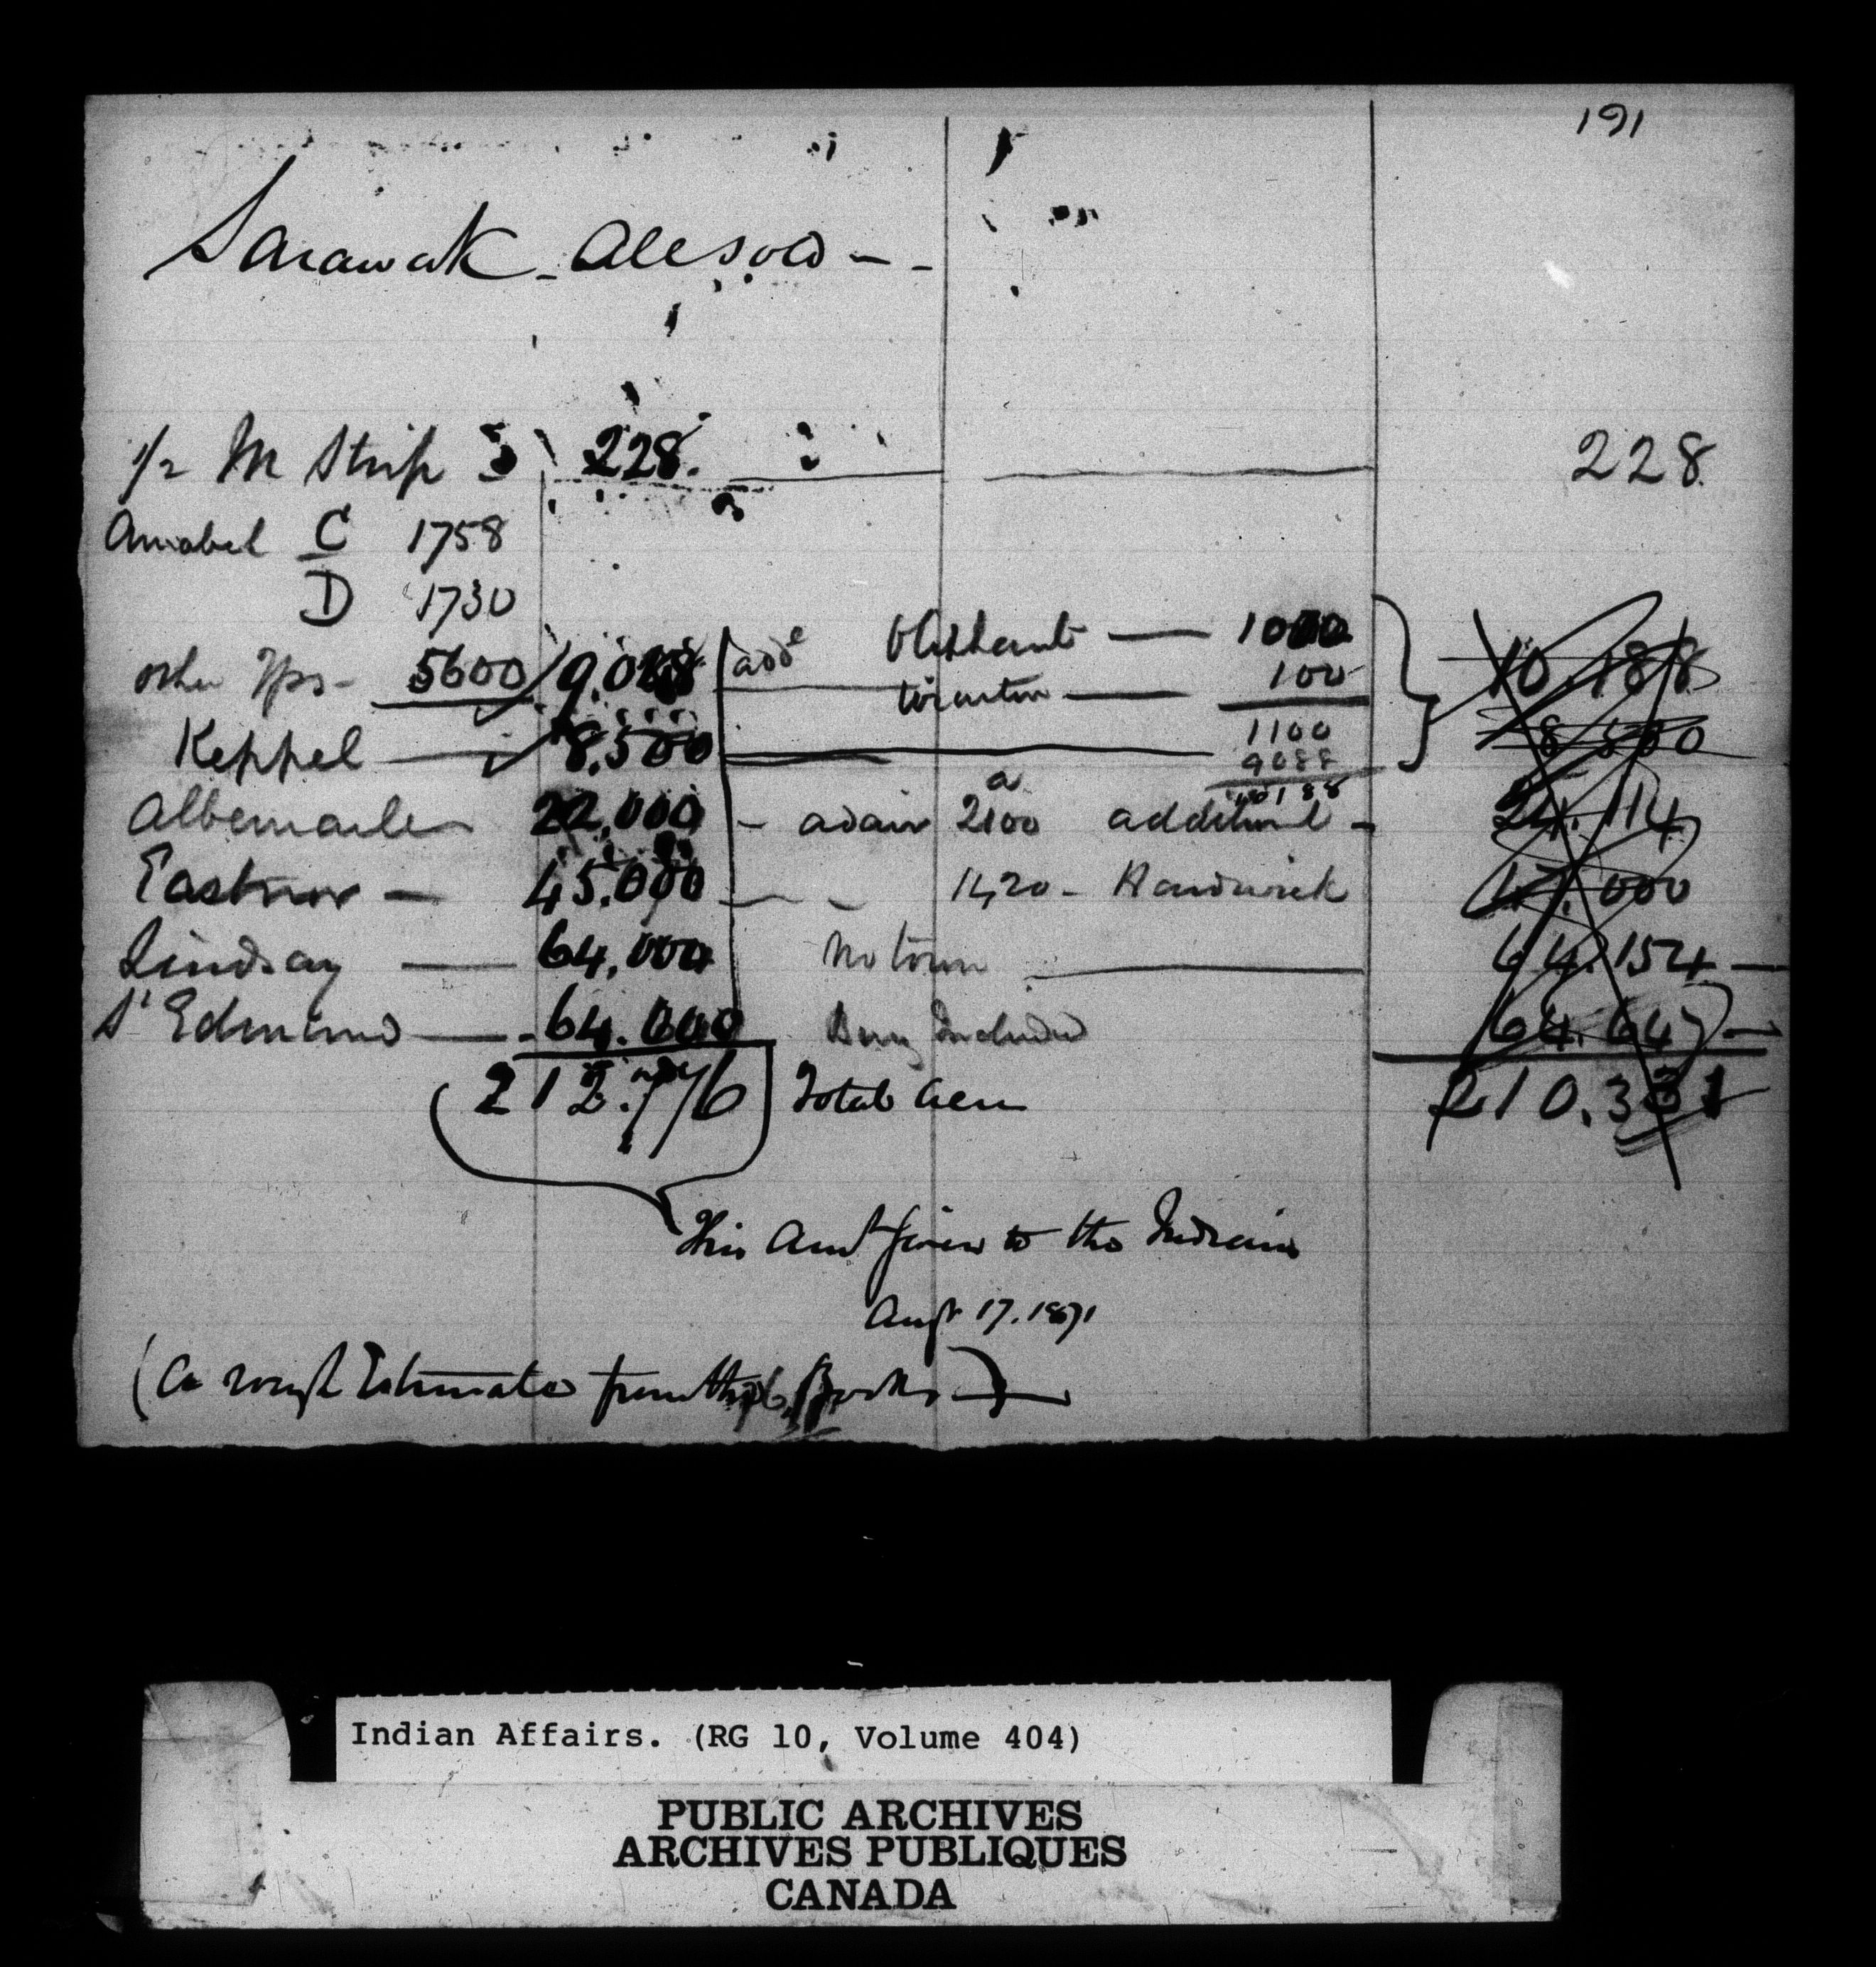 191
Sarawak - All sold - -
1/2 M Strip 228. 228.
Amabel C 1758
D 1730
Oliphant — 1000
other Tps - 5600 9.088 add Wiarton — 100 10.188
1100
Keppel — 8.500 8 500
9088
10188
Albemarle 22,000 - adair 2100 a additional - 24.114
Eastnor — 45.000 - - 1420 - Hardwick 000
Lindsay — 64,000 No town 64.154 —
St Edmund — 64.000 Bury Included 64.647 —
212.776 Total acres 210.331
This Amt given to the Indians
Augt 17. 1871
(a rough Estimate from the Books)
Indian Affairs. (RG 10, Volume 404)
PUBLIC ARCHIVES
ARCHIVES PUBLIQUES
CANADA